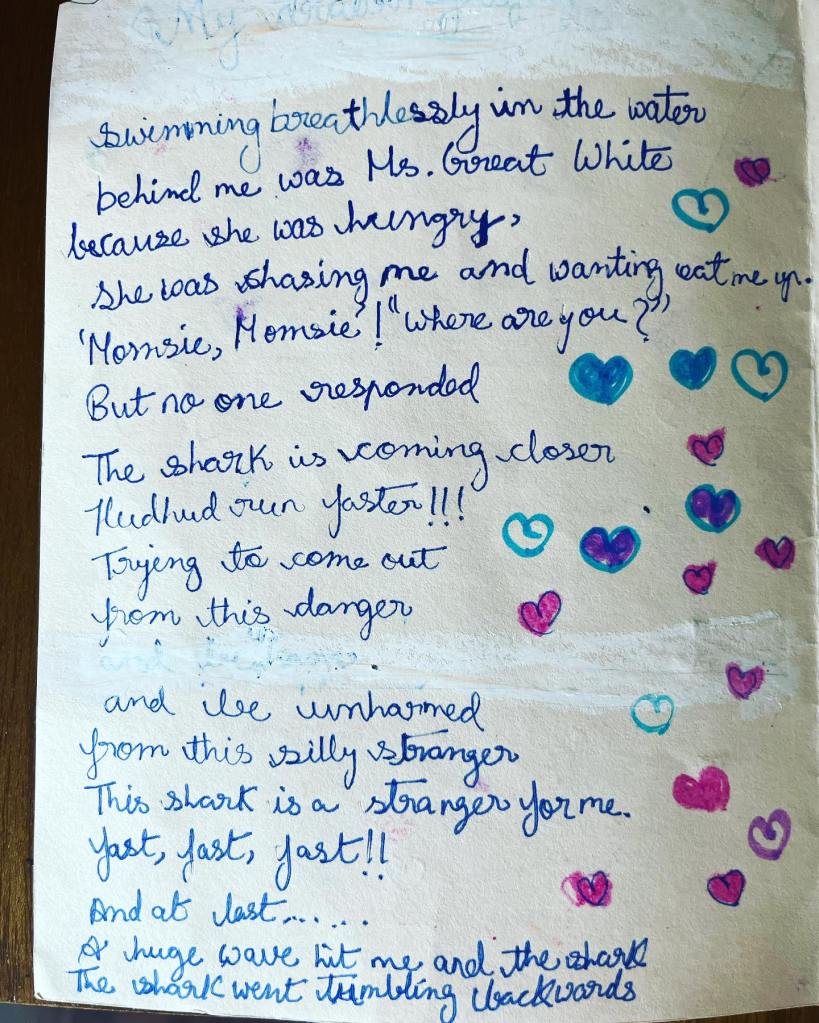 My
swimming breathlessly in the water
behind me was Ms. Great White
because she was hungry,
she was chasing me and wanting eat me up.
'Momsie, Momsie'! "Where are you?"
But no one responded
The shark is coming closer
Hudhud run faster!!!
Tryeng to come out
from this danger
and be unharmed
from this silly stranger
This shark is a stranger for me.
fast, fast, fast!!
And at last......
A huge wave hit me and the shark
The shark went tumbling backwards